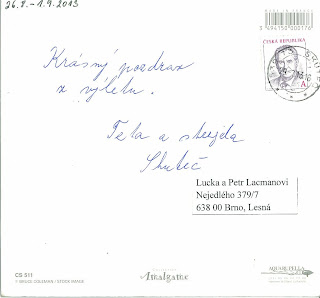 26.8. - 1.9.2013
3494150000176
Krásný pozdrav
z výletu.
ČESKÁ REPUBLIKA
A
Teta a strejda
Lucka a Petr Lacmanovi
Nejedlého 379/7
638 00 Brno, Lesná
CS 511
Amalgame
AQUARUPELLA